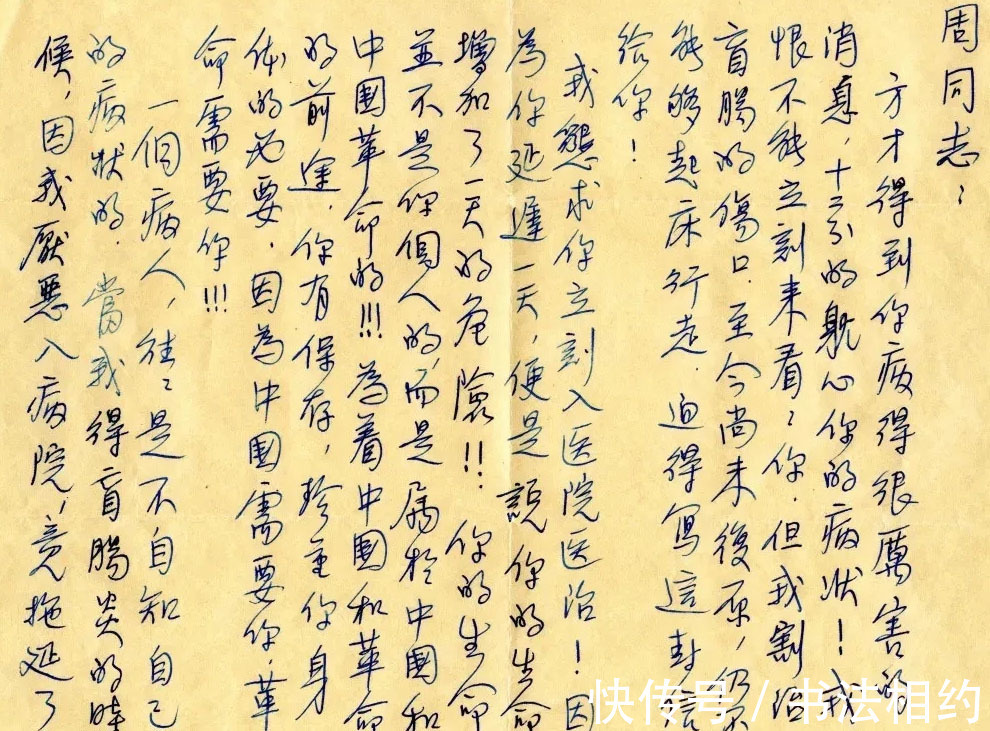 周同志：
方才得到你病得很厲害的
消息，十二分的躭心你的病狀！我
恨不能立刻来看看你．但我割治
盲腸的傷口．至今尚未復原，仍不
能够起床行走．迫得寫這封信
给你！
我懇求你立刻入医院医治！因
為你延遲一天，便是說你的生命
增加了一天的危險!!! 你的生命
並不是你個人的，而是屬於中國和
中國革命的!!! 為着中國和革命
的前途．你有保存，珍重你身
体的必要．因為中國需要你．革
命需要你!!!
一個病人，往往是不自知自己
的病狀的．當我得盲腸炎的時
候，因我厭惡入病院，竟拖延了
快传号 / 书法相约